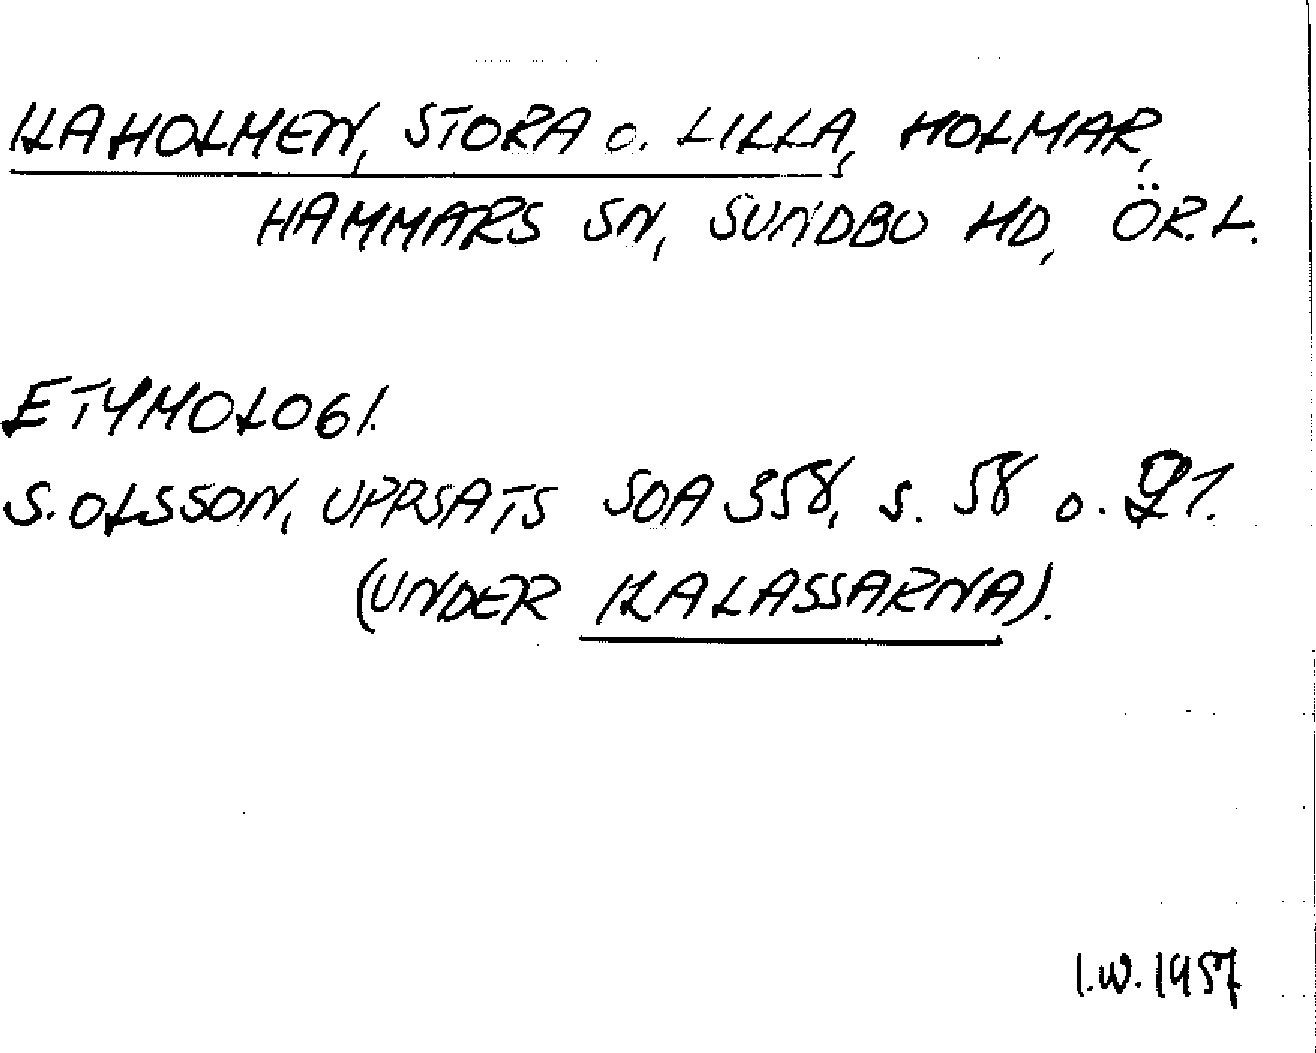 KAHOLMEN, STORA o. LILLA, HOLMAR,
HAMMARS SN, SUNDBO HD, ÖR.L.
ETYMOLOGI.
S. OLSSON, UPPSATS SOA 358, s. 58 o. 91.
(UNDER KALASSARNA).
I.W. 1957